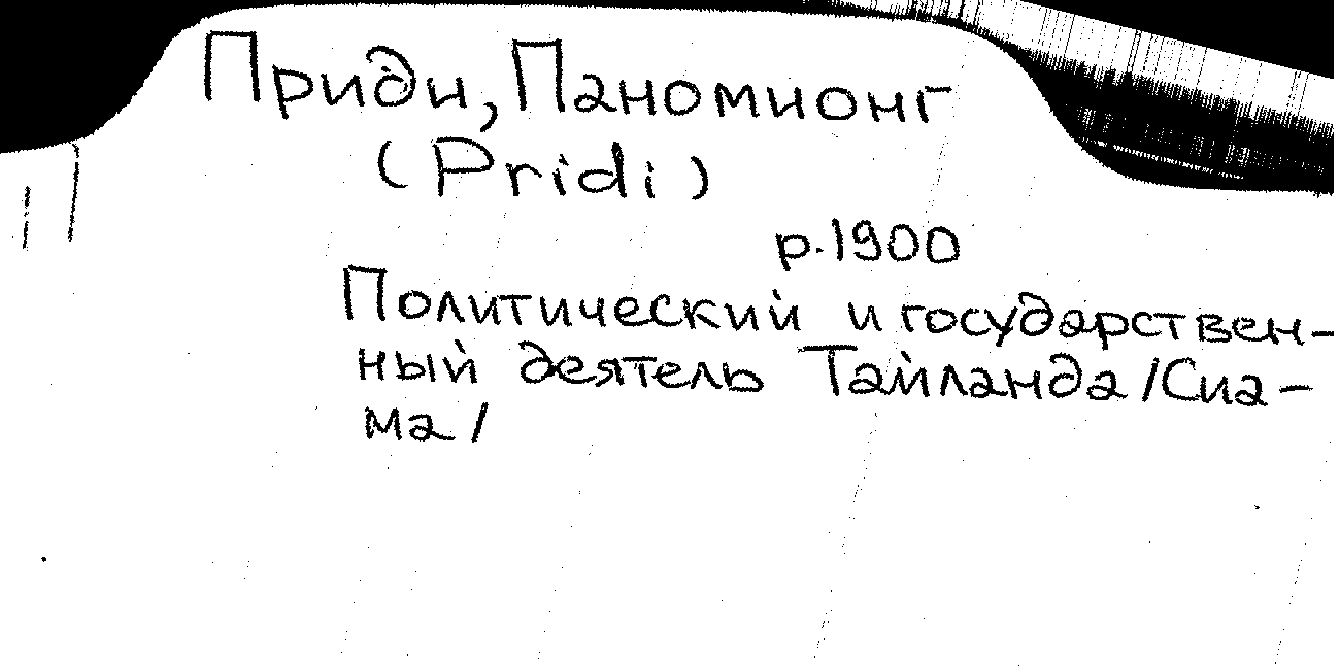 Приди, Паномионг
(Pridi)
р. 1900
Политический и государствен-
ный деятель Тайланда /Сиа-
ма/